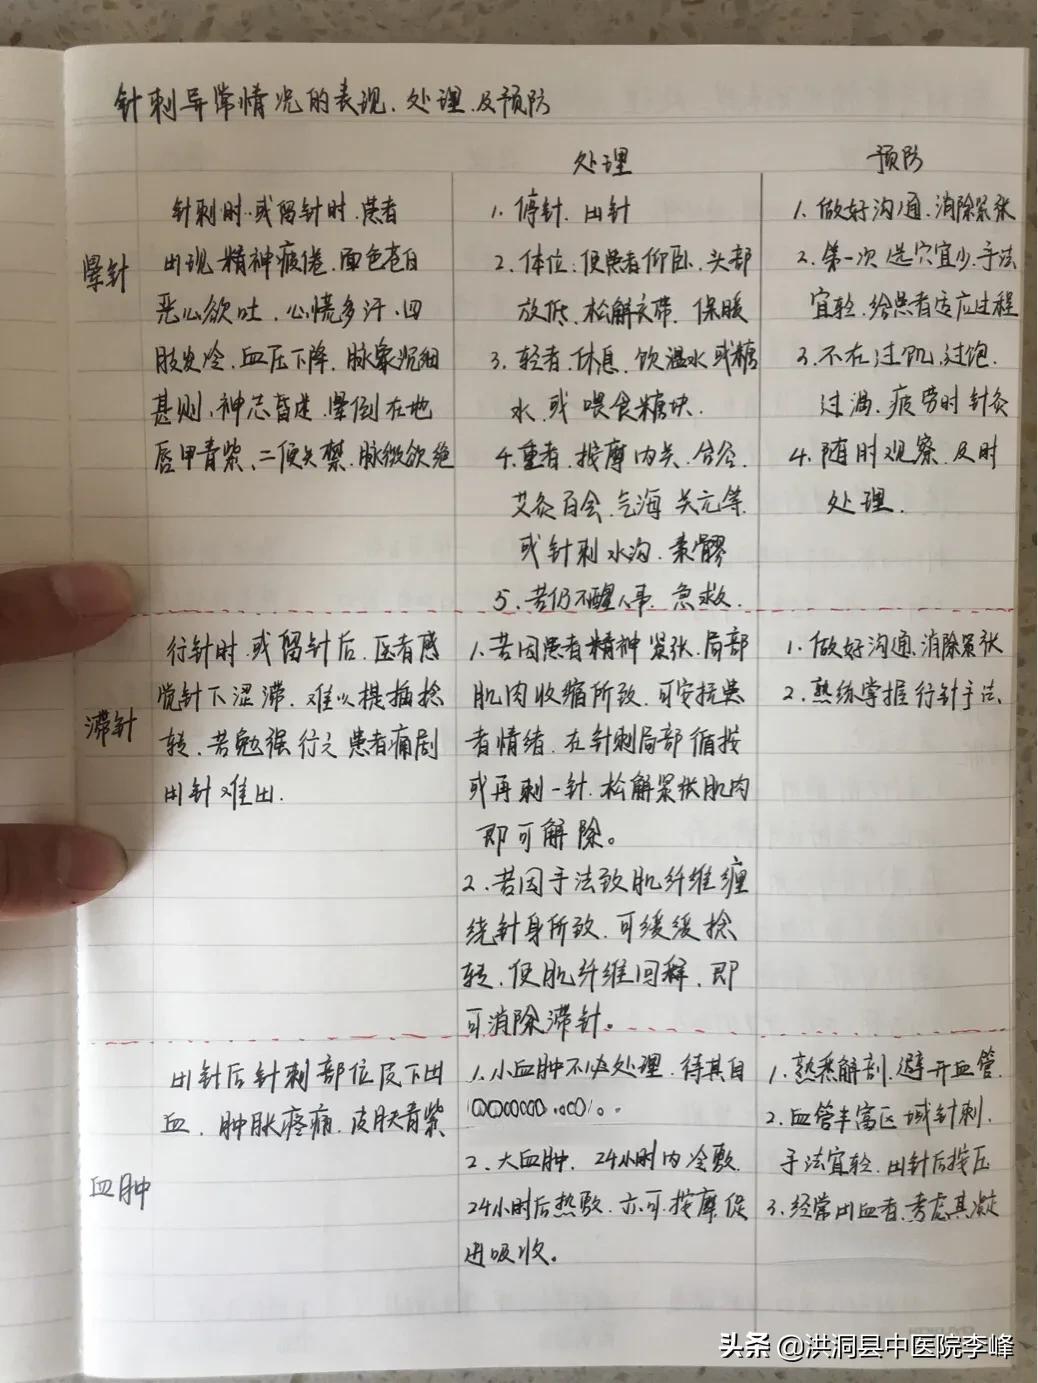 针刺异常情况的表现、处理、及预防
处理
预防
晕针
针刺时.或留针时.患者
出现精神疲倦.面色苍白
恶心欲吐.心慌多汗.四
肢发冷.血压下降.脉象沉细
甚则.神志昏迷.晕倒在地
唇甲青紫.二便失禁.脉微欲绝
1.停针.出针
2.体位.使患者仰卧.头部
放低.松解衣带.保暖
3.轻者.休息.饮温水或糖
水.或喂食糖块.
4.重者.按摩内关.合谷.
艾灸百会.气海 关元等.
或针刺水沟.素髎
5.若仍不醒人事.急救.
1.做好沟通.消除紧张
2.第一次选穴宜少.手法
宜轻.给患者适应过程
3.不在过饥.过饱.
过渴.疲劳时针灸
4.随时观察.及时
处理.
滞针
行针时.或留针后.医者感
觉针下涩滞.难以提插捻
转.若勉强行之患者痛剧
出针难出.
1.若因患者精神紧张.局部
肌肉收缩所致.可安抚患
者情绪.在针刺局部循按
或再刺一针.松解紧张肌肉
即可解除。
2.若因手法致肌纤维缠
绕针身所致.可缓缓捻
转.使肌纤维回释.即
可消除滞针。
1.做好沟通.消除紧张
2.熟练掌握行针手法
血肿
出针后针刺部位皮下出
血.肿胀疼痛.皮肤青紫
1.小血肿不必处理.待其自
2.大血肿.24小时内冷敷.
24小时后热敷.亦可按摩促
进吸收。
1.熟悉解剖.避开血管.
2.血管丰富区域针刺.
手法宜轻.出针后按压
3.经常出血者.考虑其凝
头条 @洪洞县中医院李峰